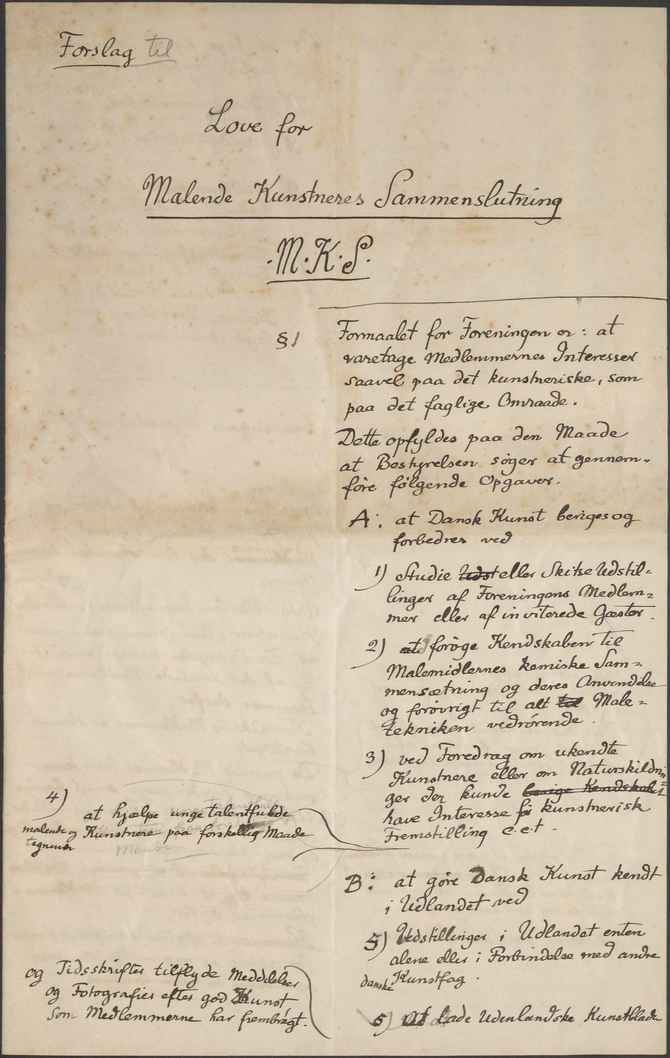 Forslag til
Love for
Malende Kunstneres Sammenslutning
·M·K·S·
§1 Formaalet for Foreningen er: at
varetage Medlemmernes Interesser
saavel paa det kunstneriske, som
paa det faglige Omraade.
Dette opfyldes paa den Maade
at Bestyrelsen søger at gennem-
føre følgende Opgaver.
A: at Dansk Kunst beriges og
forbedres ved
1) Studie Udst eller Skitse Udstil-
linger af Foreningens Medlem-
mer eller af inviterede Gæster.
2) at forøge Kendskaben til
Malemidlernes kemiske Sam-
mensætning og deres Anvendelse
og forøvrigt til alt til Male-
tekniken vedrørende.
3) ved Foredrag om ukendte
Kunstnere eller om Naturskildrin-
ger der kunde berige Kendskab
have Interesse f kunstnerisk
Fremstilling e.c.t.
4) at hjælpe unge talentfulde
malende og Kunstnere paa forskellig Maade
tegnende
B: at gøre Dansk Kunst kendt
i Udlandet ved
5) Udstillinger i Udlandet enten
alene eller i Forbindelse med andre
danske Kunstfag.
5) At Lade Udenlandske Kunstblade
og Tidsskrifter tilflyde Meddelelser
og Fotografier efter god Kunst
som Medlemmerne har frembragt.